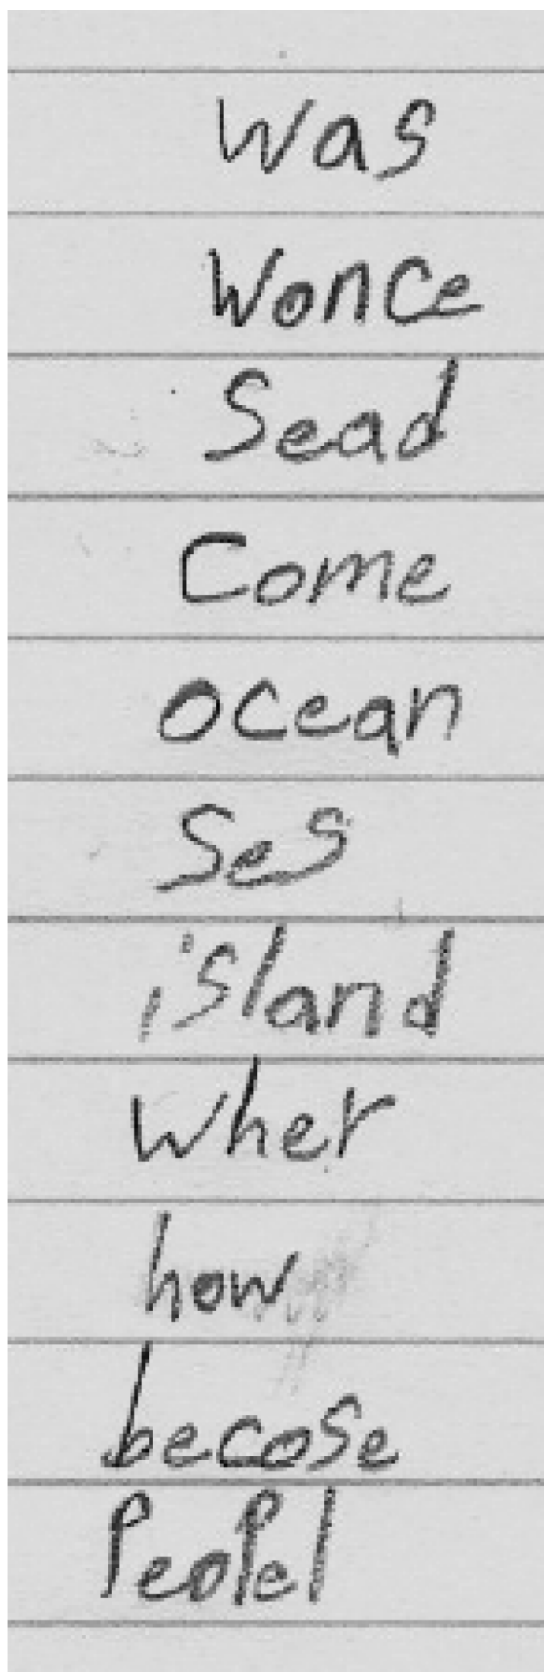 Was
Wonce
Sead
Come
ocean
Ses
island
Wher
how
becose
PeoPel